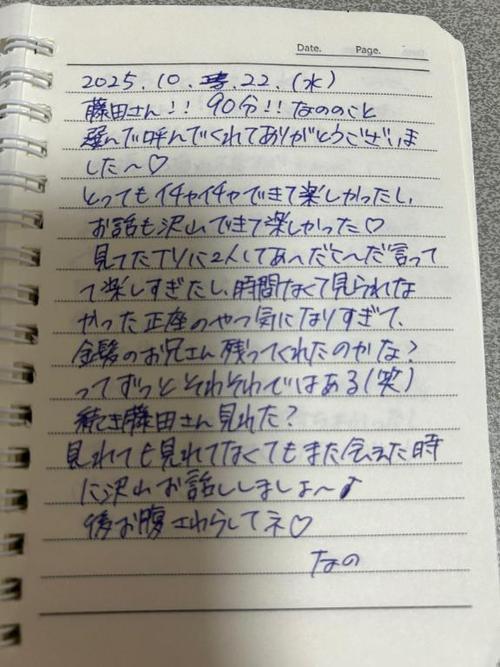 Date. Page.
2025.10.22.(水)
藤田さん!! 90分!! なののこと
選んで呼んでくれてありがとうございま
した〜♡
とってもイチャイチャできて楽しかったし、
お話も沢山できて楽しかった♡
見てたTVに2人してあ〜だこ〜だ言って
て楽しすぎたし、時間なくて見られな
かった正座のやつ気になりすぎて、
金髪のお兄さん残ってくれたのかな?
ってずっとそわそわではある(笑)
続き藤田さん見れた?
見れても見れてなくてもまた会えた時
に沢山お話ししましょ〜♪
後お腹さわらしてネ♡
なの